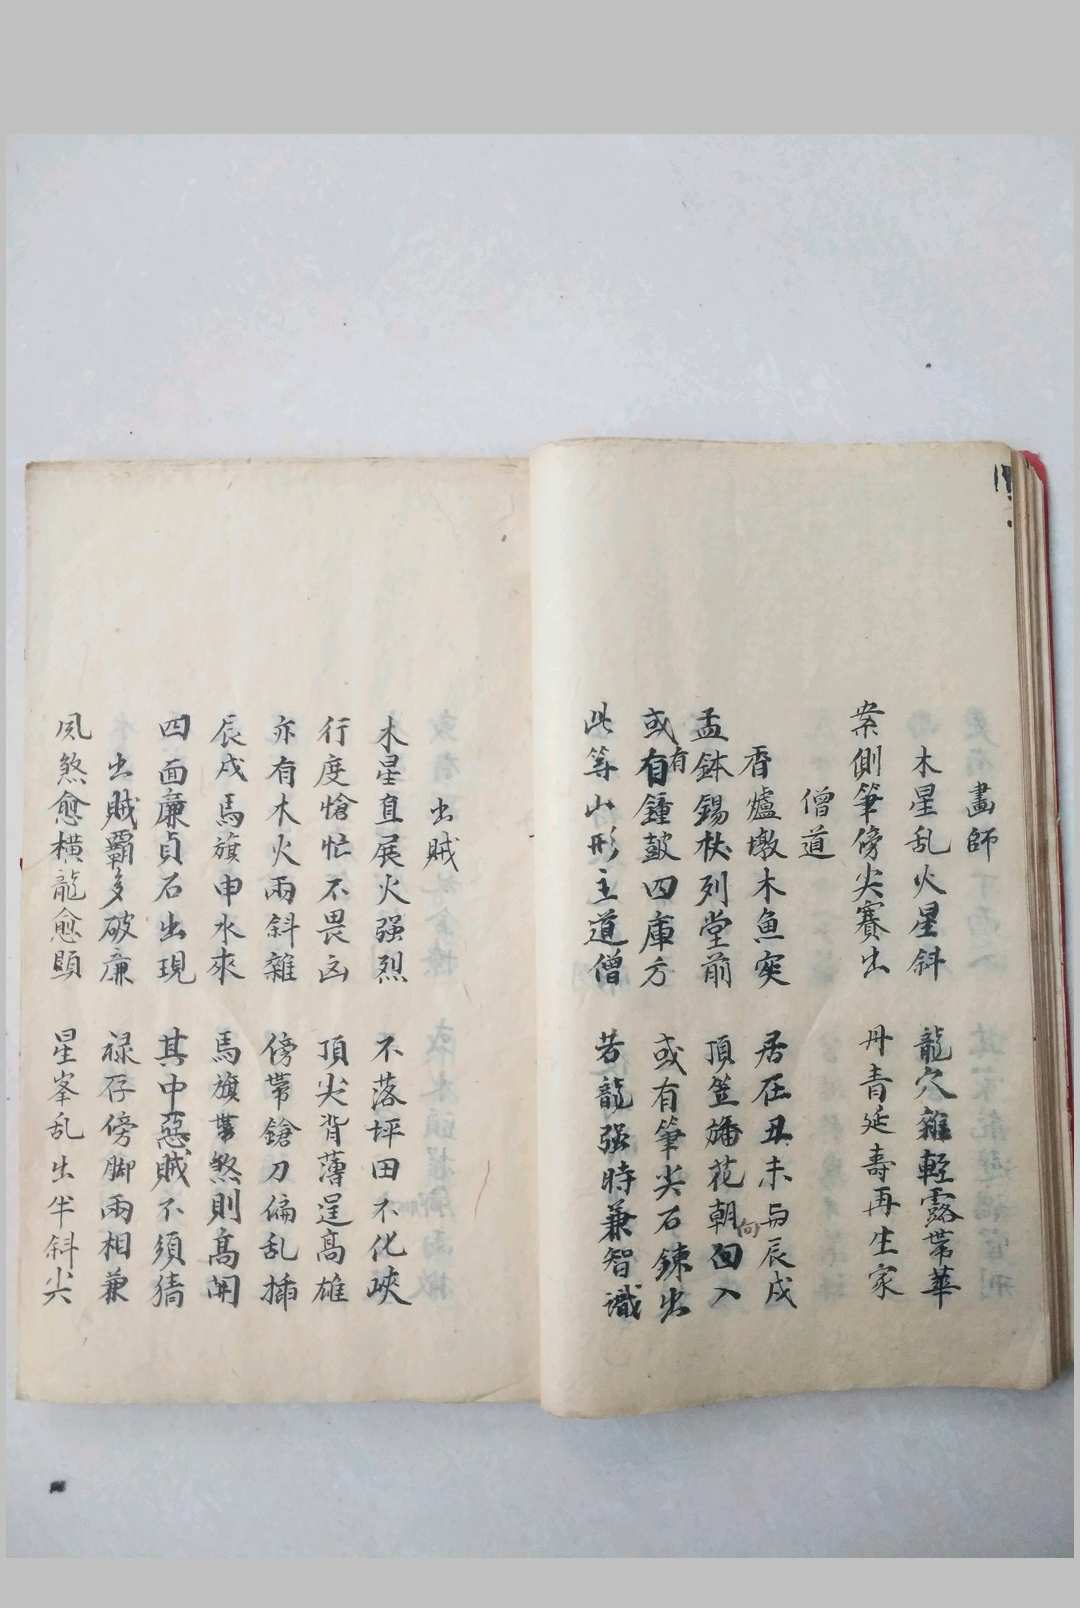 畫師
木星乱火星斜 龍穴雜輕露帶華
案側筆傍尖賽出 丹青延壽再生家
僧道
香爐墩木魚突 居在丑未与辰戌
孟鉢錫杖列堂前 頂笠旛花朝向回入
或有有鍾鼓四庫方 或有筆尖石鍊出
此等山形主道僧 若龍强時兼智識
出賊
木星直展火强烈 不落坪田不化峽
行度愴忙不畏凶 頂尖背薄逞高雄
亦有木火兩斜雜 傍帶鎗刀偏乱插
辰戌馬旗申水來 馬旗帶煞則高開
四面廉貞石出現 其中惡賊不須猜
出賊覇多破廉 禄存傍脚兩相兼
风煞愈橫龍愈顕 星峯乱出半斜尖